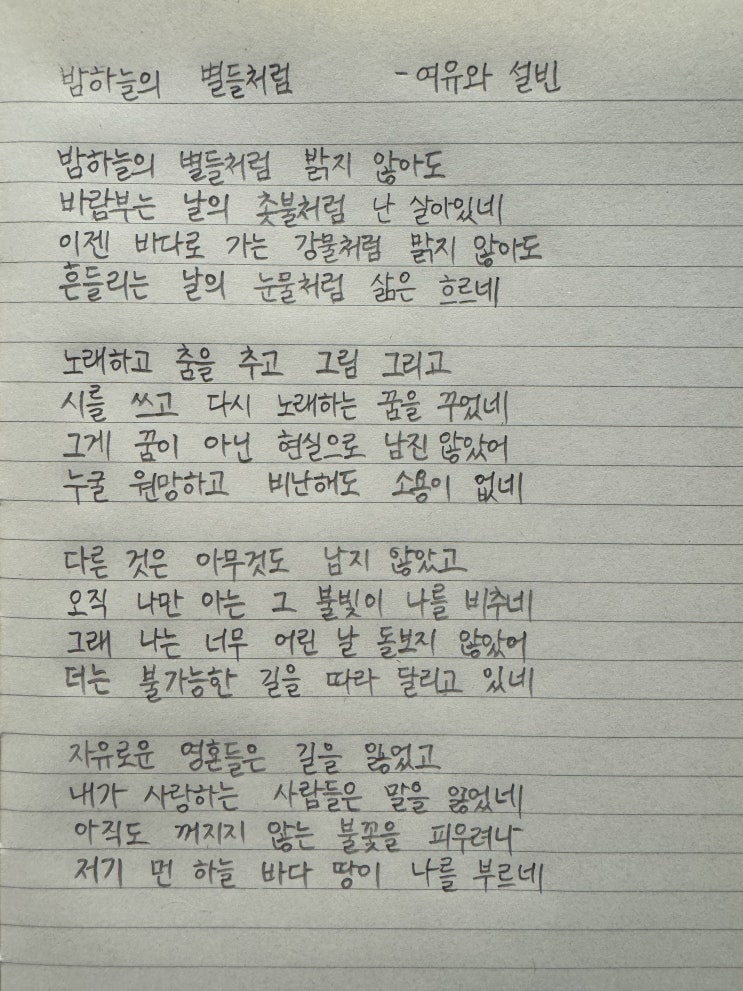 밤하늘의 별들처럼 - 여유와 설빈
밤하늘의 별들처럼 밝지 않아도
바람부는 날의 촛불처럼 난 살아있네
이젠 바다로 가는 강물처럼 맑지 않아도
흔들리는 날의 눈물처럼 삶은 흐르네
노래하고 춤을 추고 그림 그리고
시를 쓰고 다시 노래하는 꿈을 꾸었네
그게 꿈이 아닌 현실으로 남진 않았어
누굴 원망하고 비난해도 소용이 없네
다른 것은 아무것도 남지 않았고
오직 나만 아는 그 불빛이 나를 비추네
그래 나는 너무 어린 날 돌보지 않았어
더는 불가능한 길을 따라 달리고 있네
자유로운 영혼들은 길을 잃었고
내가 사랑하는 사람들은 말을 잃었네
아직도 꺼지지 않는 불꽃을 피우려나
저기 먼 하늘 바다 땅이 나를 부르네